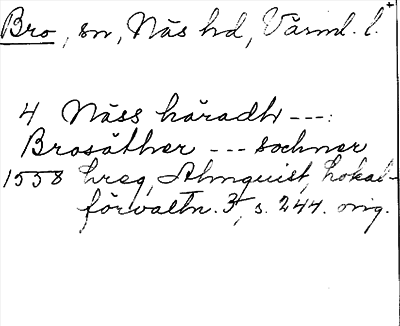 Bro, sn, Näs hd, Värml. l.+
4 Näss häradh ---:
Brosäther --- sochner
1558 hreg, Almquist, Lokal-
förvaltn. 3, s. 244. orig.